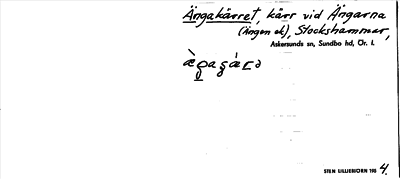 Ängakärret, kärr vid Ängarna
(Ängen ek), Stockshammar,
Askersunds sn, Sundbo hd, Ör. l.
STEN LILLIEBJÖRN 195 4.